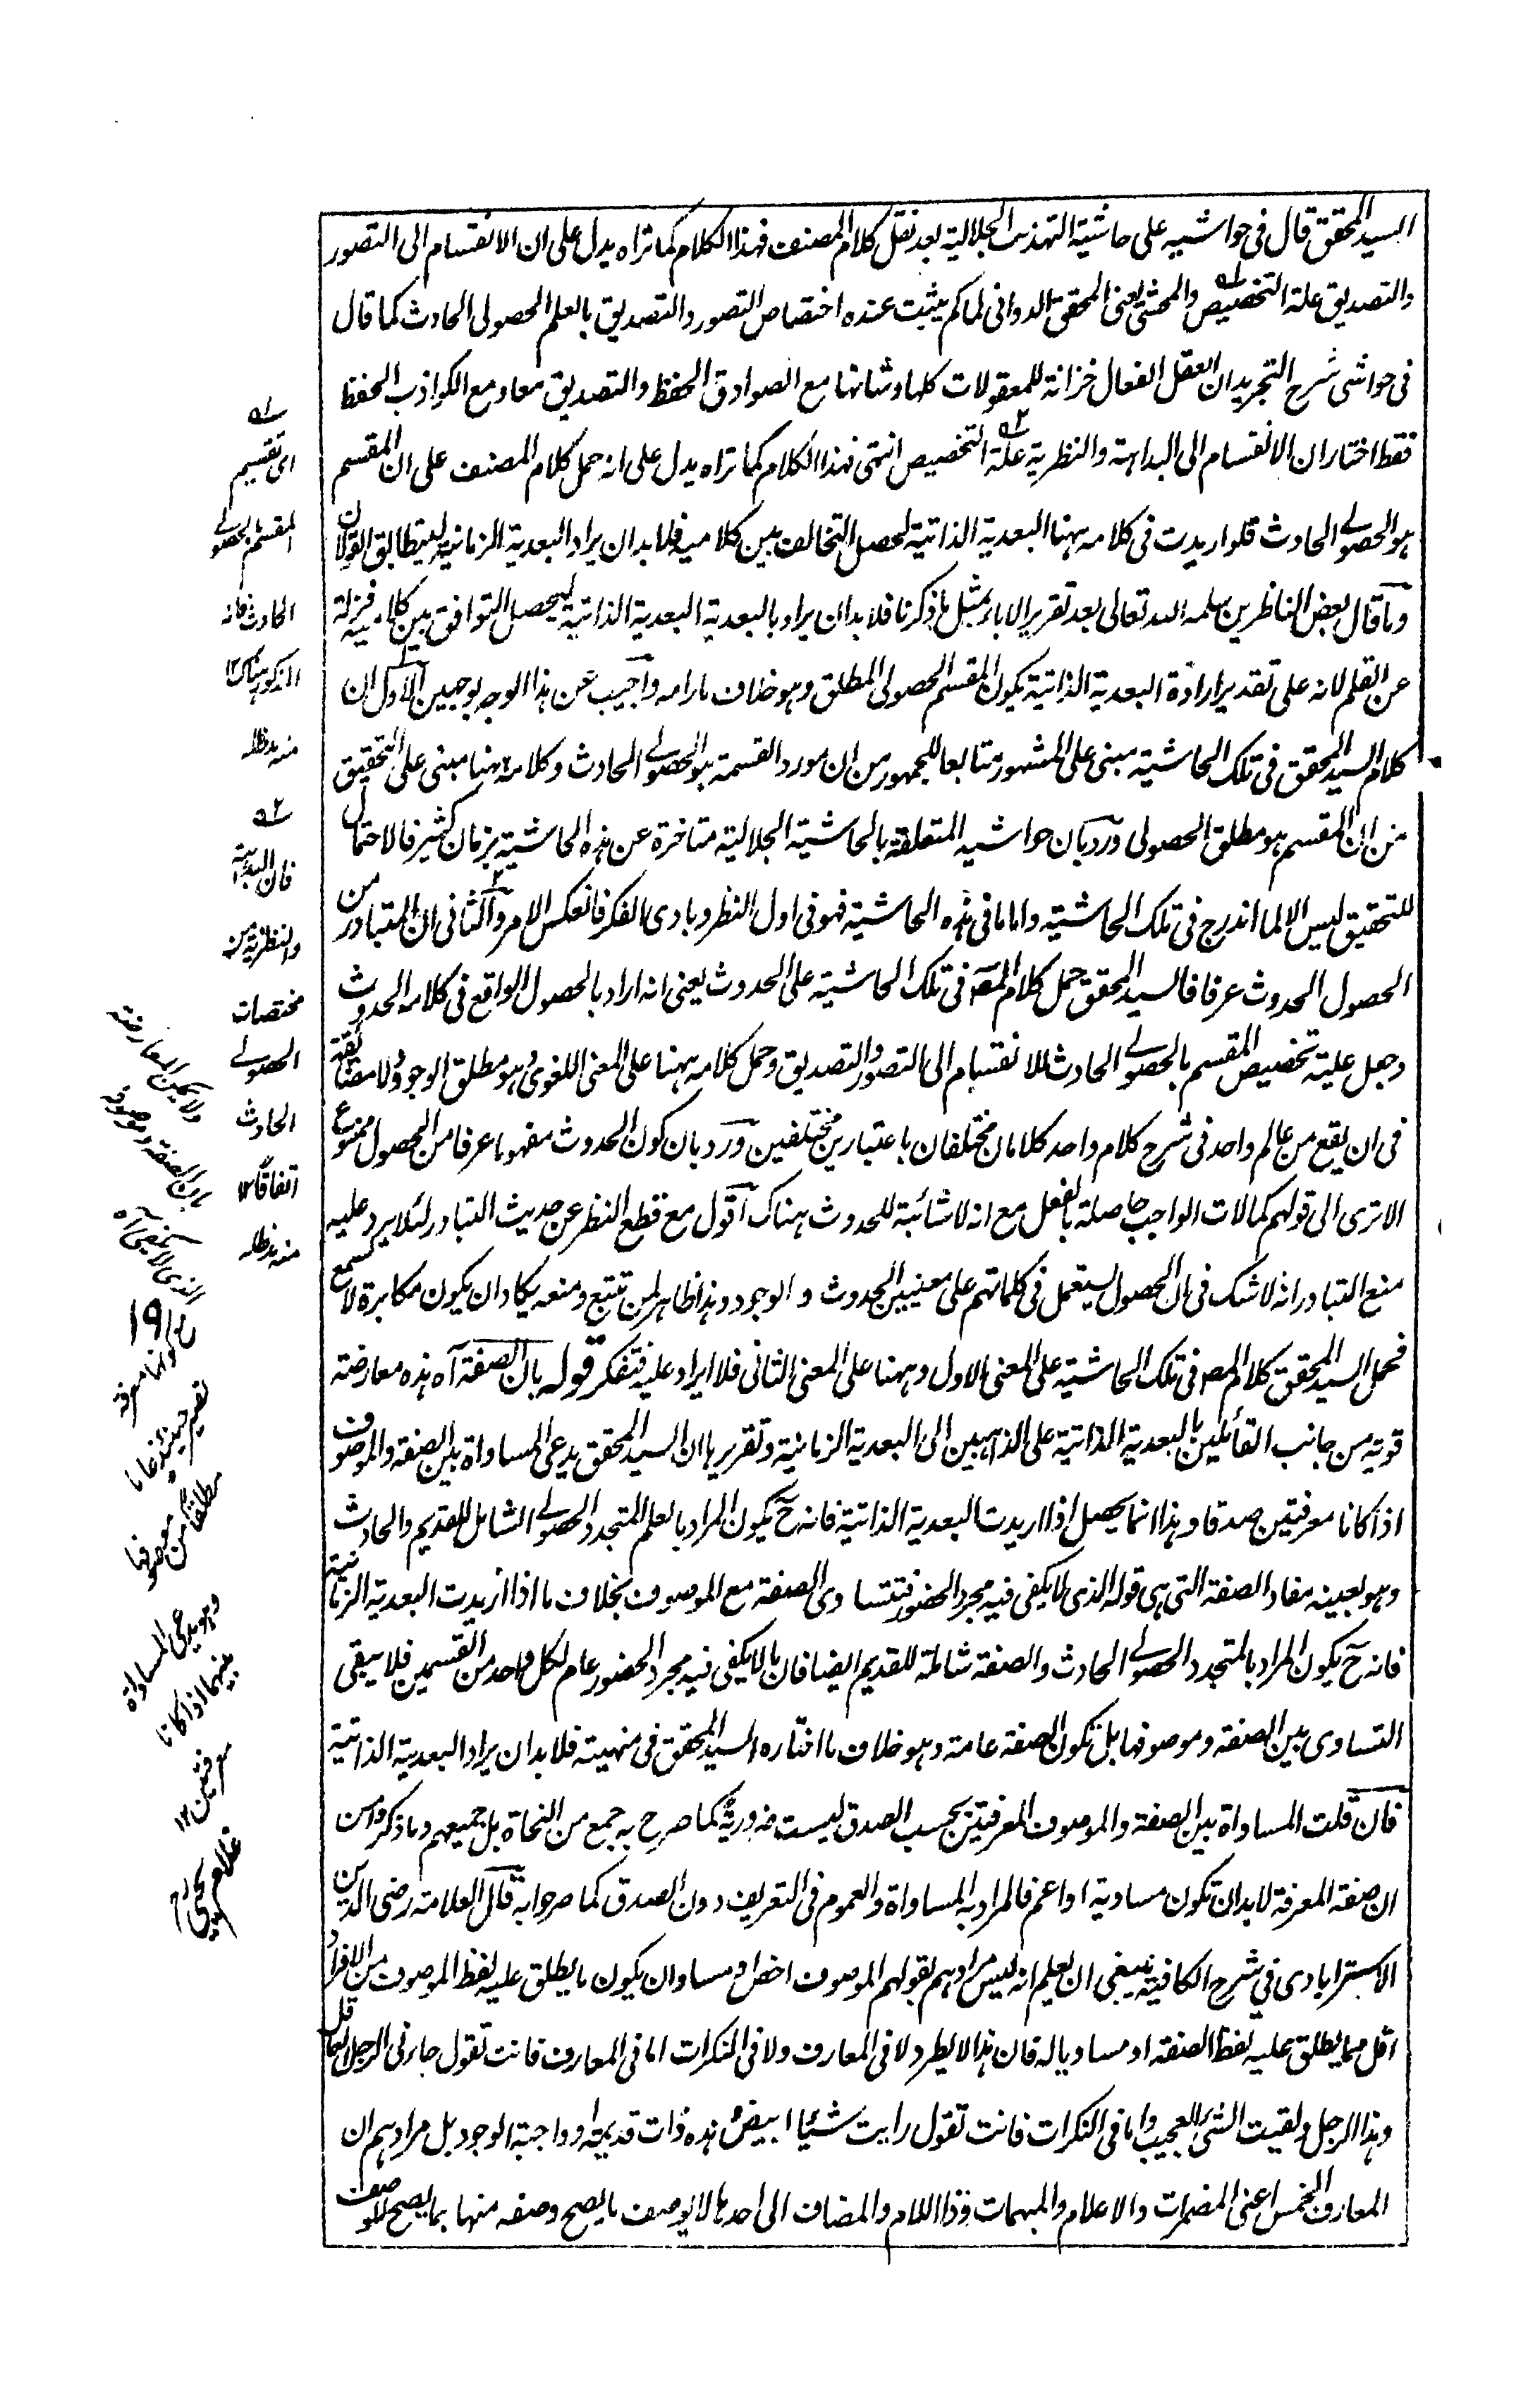 السيد المحقق قال فى حواشيه على حاشية التهذيب الجلالية بعد نقل كلام المصنف فهذا الكلام كما تراه يدل على ان الانقسام الى التصور
والتصديق علة التخصيص والمحشى يعنى المحقق الدوانى لما لم يثبت عنده اختصاص التصور والتصديق بالعلم الحصولى الحادث كما قال
فى حواشى شرح التجريد ان العقل الفعال خزانة للمعقولات كلها وشانها مع الصوادق الحفظ والتصديق معا ومع الكواذب الحفظ
فقط اختار ان الانقسام الى البداهة والنظرية علة التخصيص انتهى فهذا الكلام كما تراه يدل على انه حمل كلام المصنف على ان المقسم
هو الحصولے الحادث فلو اريدت فى كلامه ههنا البعدية الذاتية لحصل التخالف بين كلاميه فلا بد ان يراد البعدية الزمانية ليتطابق القولان
وما قال بعض الناظرين سلمه الله تعالى بعد تقرير الاباء بمثل ما ذكرنا فلا بد ان يراد بالبعدية البعدية الذاتية ليحصل التوافق بين كلاميه فزلة
عن القلم لانه على تقدير ارادة البعدية الذاتية يكون المقسم الحصولى المطلق وهو خلاف ما رامه واجيب عن هذا الوجه بوجهين الاول ان
كلام السيد المحقق فى تلك الحاشية مبنى على المشهور متابعا للجمهور من ان مورد القسمة هو الحصولے الحادث وكلامه ههنا مبنى على التحقيق
من ان المقسم هو مطلق الحصولى ورد بان حواشيه المتعلقة بالحاشية الجلالية متاخرة عن هذه الحاشية بزمان كثير فالاحتمال
للتحقيق ليس الا لما اندرج فى تلك الحاشية واما ما فى هذه الحاشية فهو فى اول النظر وبادى الفكر فانعكس الامر والثانى ان المتبادر من
الحصول الحدوث عرفا فالسيد المحقق حمل كلام المصـ فى تلك الحاشية على الحدوث يعنى انه اراد بالحصول الواقع فى كلامه الحدوث
وجعل علية تخصيص المقسم بالحصولے الحادث للانقسام الى التصور والتصديق وحمل كلامه ههنا على المعنى اللغوى وهو مطلق الوجود ولا مضائقة
فى ان يقع من عالم واحد فى شرح كلام واحد كلامان مختلفان باعتبارين مختلفين ورد بان كون الحدوث مفهوما عرفا من الحصول ممنوع
الا ترى الى قولهم كمالات الواجب حاصلة بالفعل مع انه لا شائبة للحدوث هناك اقول مع قطع النظر عن حديث التبادر لئلا يرد عليه
منع التبادر انه لا شك فى ان الحصول يستعمل فى كلماتهم على معنيين الحدوث والوجود وهذا ظاهر لمن تتبع ومنعه يكاد ان يكون مكابرة لا تسمع
فحمل السيد المحقق كلام المصـ فى تلك الحاشية على المعنى الاول وههنا على المعنى الثانى فلا ايراد عليه فتفكر قوله بان الصفة آه هذه معارضة
قوية من جانب القائلين بالبعدية الذاتية على الذاهبين الى البعدية الزمانية وتقريرها ان السيد المحقق يدعى المساواة بين الصفة والموصوف
اذا كانا معرفتين صدقا وهذا انما يحصل اذا اريدت البعدية الذاتية فانه ح يكون المراد بالعلم المتجدد الحصولے الشامل للقديم والحادث
وهو بعينه مفاد الصفة التى هى قوله الذى لا يكفى فيه مجرد الحضور فتتساوى الصفة مع الموصوف بخلاف ما اذا اريدت البعدية الزمانية
فانه ح يكون المراد بالمتجدد الحصولے الحادث والصفة شاملة للقديم ايضا فان ما لا يكفى فيه مجرد الحضور عام لكل واحد من القسمين فلا يبقى
التساوى بين الصفة وموصوفها بل تكون الصفة عامة وهو خلاف ما اختاره السيد المحقق فى منهيته فلا بد ان يراد البعدية الذاتية
فان قلت المساواة بين الصفة والموصوف المعرفتين بحسب الصدق ليست ضرورية كما صرح به جمع من النحاة بل جميعهم وما ذكروا من
ان صفة المعرفة لا بد ان تكون مساوية او اعم فالمراد به المساواة والعموم فى التعريف دون الصدق كما صرحوا به قال العلامة رضى الدين
الاسترابادى فى شرح الكافية ينبغى ان يعلم انه ليس مرادهم بقولهم الموصوف اخص او مساو ان يكون ما يطلق عليه لفظ الموصوف من الافراد
اقل مما يطلق عليه لفظ الصفة او مساويا له فان هذا لا يطرد لا فى المعارف ولا فى النكرات اما فى المعارف فانت تقول جاءنى الرجل العاقل
وهذا الرجل ولقيت الشئ العجيب واما فى النكرات فانت تقول رايت شيئا ابيض وهذه ذات قديمة او واجبة الوجود بل مرادهم ان
المعارف الخمس اعنى المضمرات والاعلام والمبهمات وذا اللام والمضاف الى احدها لا يوصف ما يصح وصفه منها بما يصح للوصف
۱ه
اى تقسيم
المقسم بالحصولے
الحادث فانه
المذكور هناك ۱۲
منه مد ظله
۲ه
فان البداهة
والنظرية من
مختصات
الحصولے
الحادث
اتفاقا ۱۲
منه مد ظله
ولا يمكن المعارضة
بان الصفة وموصوفه
الذى لا يكفى آه
۱۹
مطلقا من موصوفها
وهو يدعى المساواة
بينهما اذا كانا
معرفتين ۱۲
غلام يحيى رح